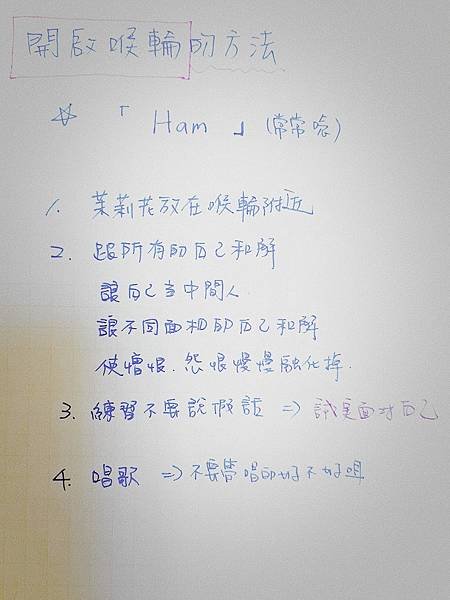 開啟喉輪的方法
☆ 「 Ham 」 (常常唸)
1. 茉莉花放在喉輪附近
2. 跟所有的自己和解
讓自己當中間人.
讓不同面相的自己和解
使憎恨.怨恨慢慢融化掉.
3. 練習不要說假話 => 誠實面對自己
4. 唱歌 => 不要管唱的好不好咡